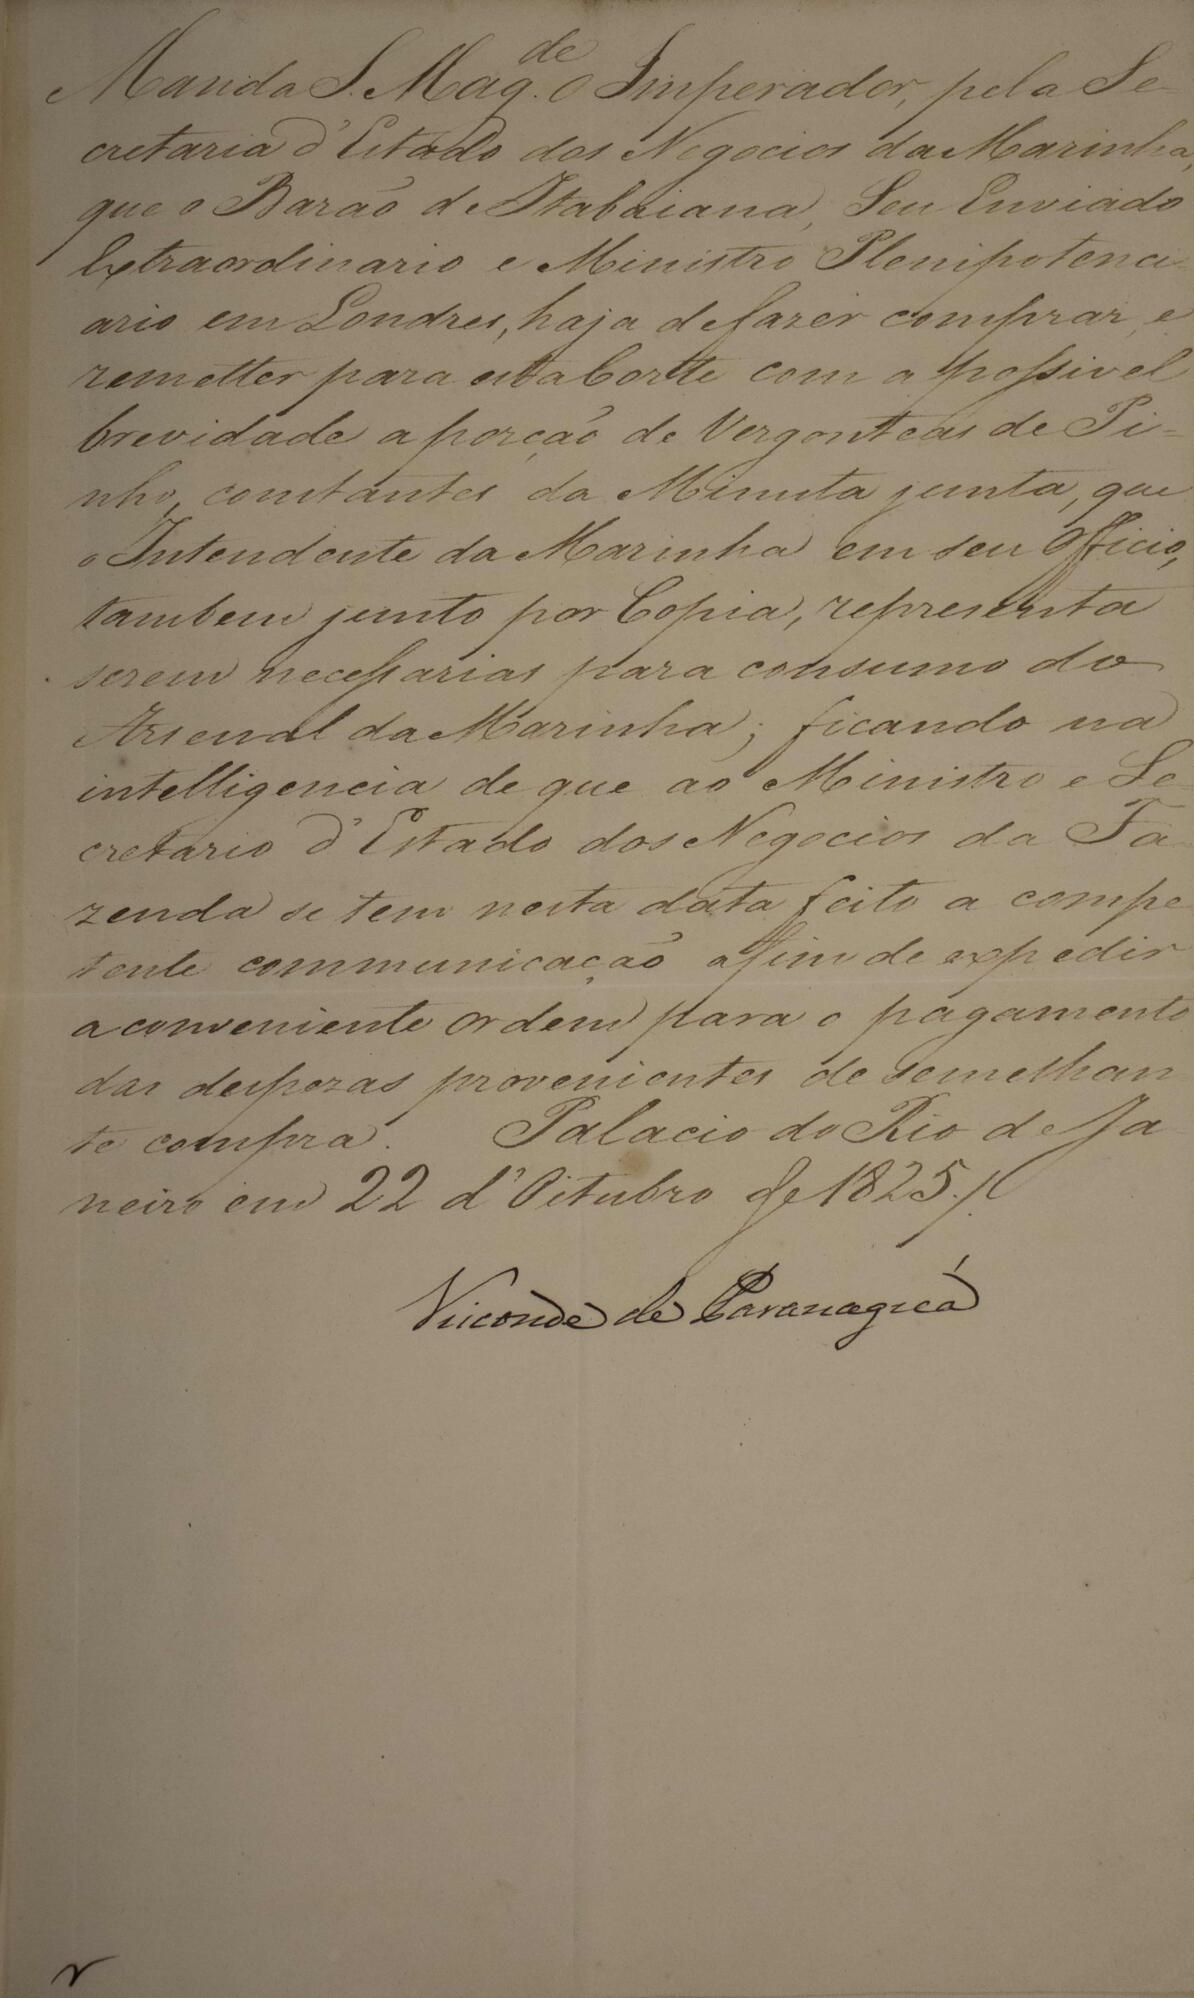 Manda S. Mag.de O Imperador, pela Se-
cretaria d'Estado dos Negocios da Marinha,
que o Barão de Itabaiana, Seu Enviado
Extraordinario e Ministro Plenipotenci-
ario em Londres, haja de fazer comprar, e
remetter para esta Corte com a possivel
brevidade a porção de Vergonteas de Pi-
nho, constantes da Minuta junta, que
o Intendente da Marinha em seu Officio,
tambem junto por Copia, representa
serem necessarias para consumo do
Arsenal da Marinha; ficando na
intelligencia de que ao Ministro e Se-
cretario d'Estado dos Negocios da Fa-
zenda se tem nesta data feito a compe-
tente communicação afim de expedir
a conveniente ordem para o pagamento
das despezas provenientes de semelhan-
te compra. Palacio do Rio de Ja-
neiro em 22 d'Oitubro de 1825./.
Visconde de Paranaguá